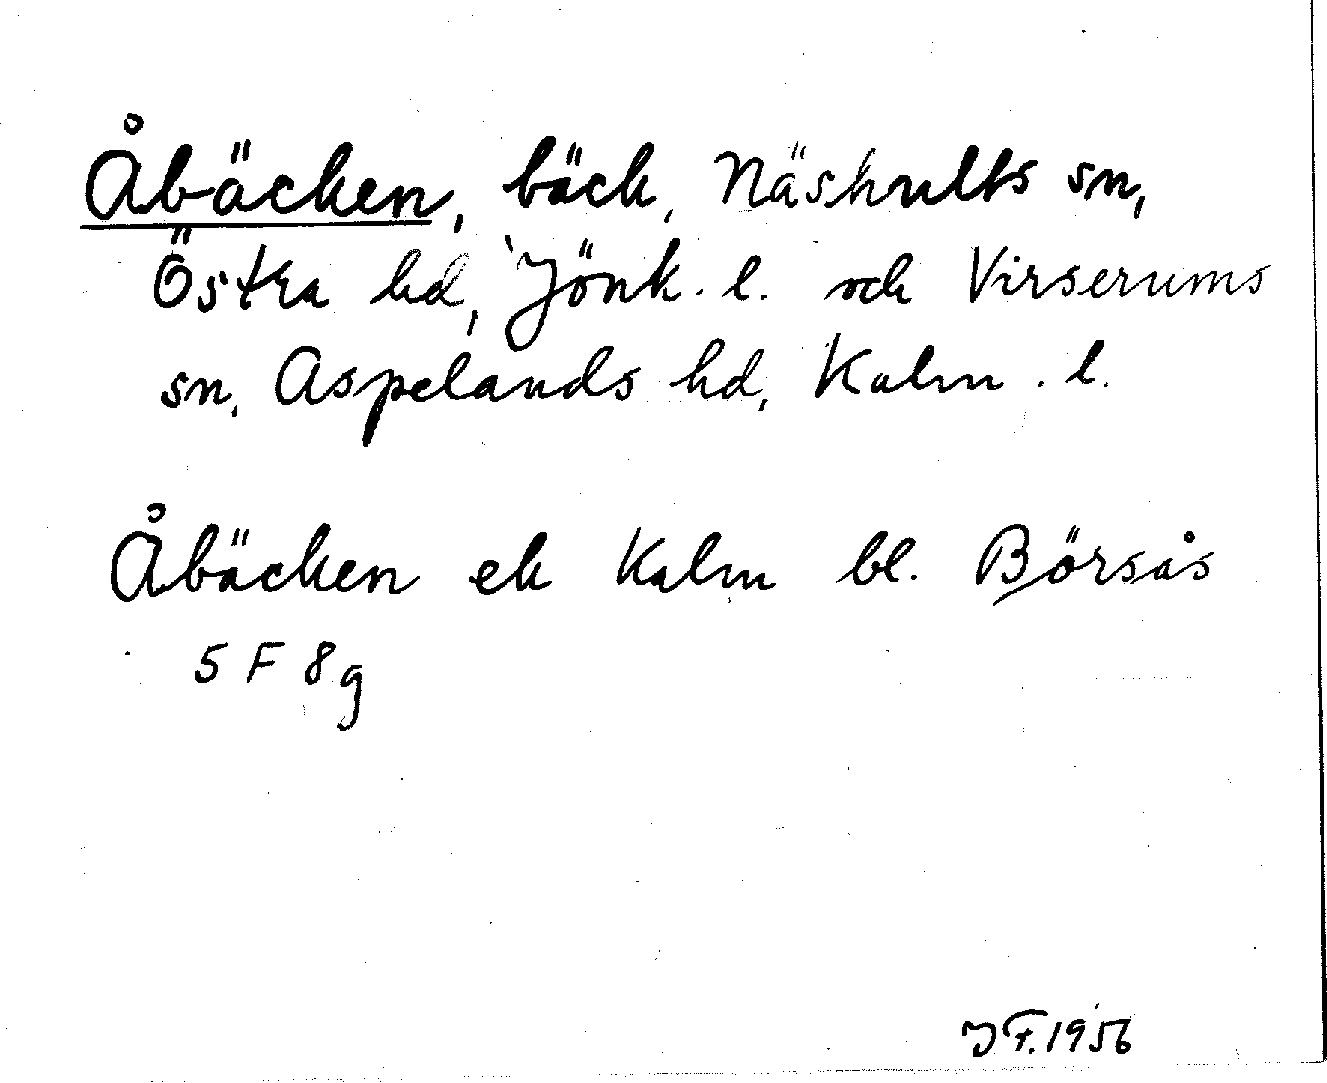 Åbäcken, bäck, Näshults sn,
Östra hd, Jönk. l. och Virserums
sn, Aspelands hd, Kalm. l.
Åbäcken ek Kalm bl. Börsås
5 F 8g
J F. 1956